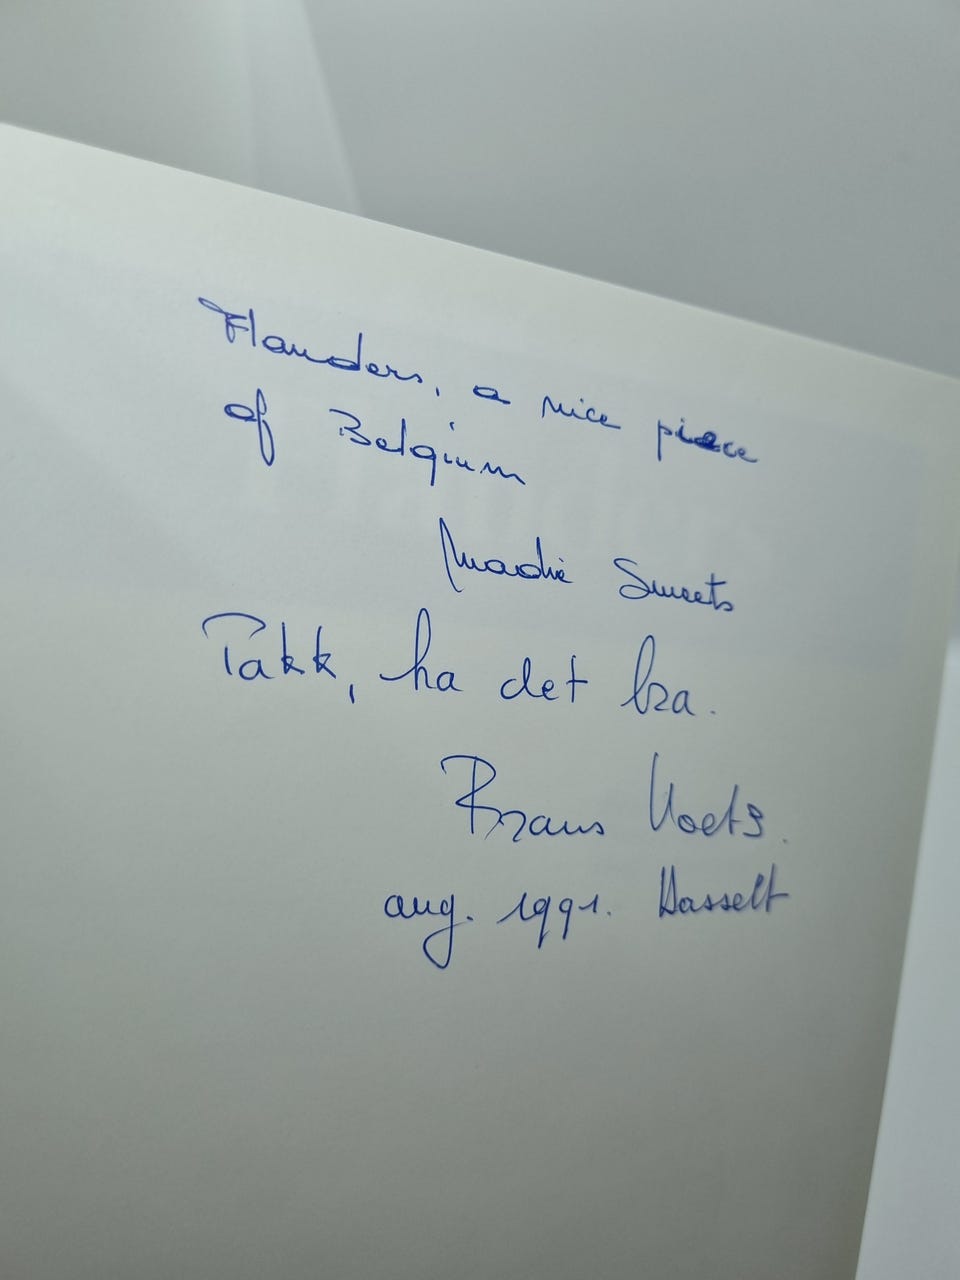 Flanders, a nice piece
of Belgium
Madie Smeets
Takk, ha det bra.
Voets.
aug. 1991. Hasselt